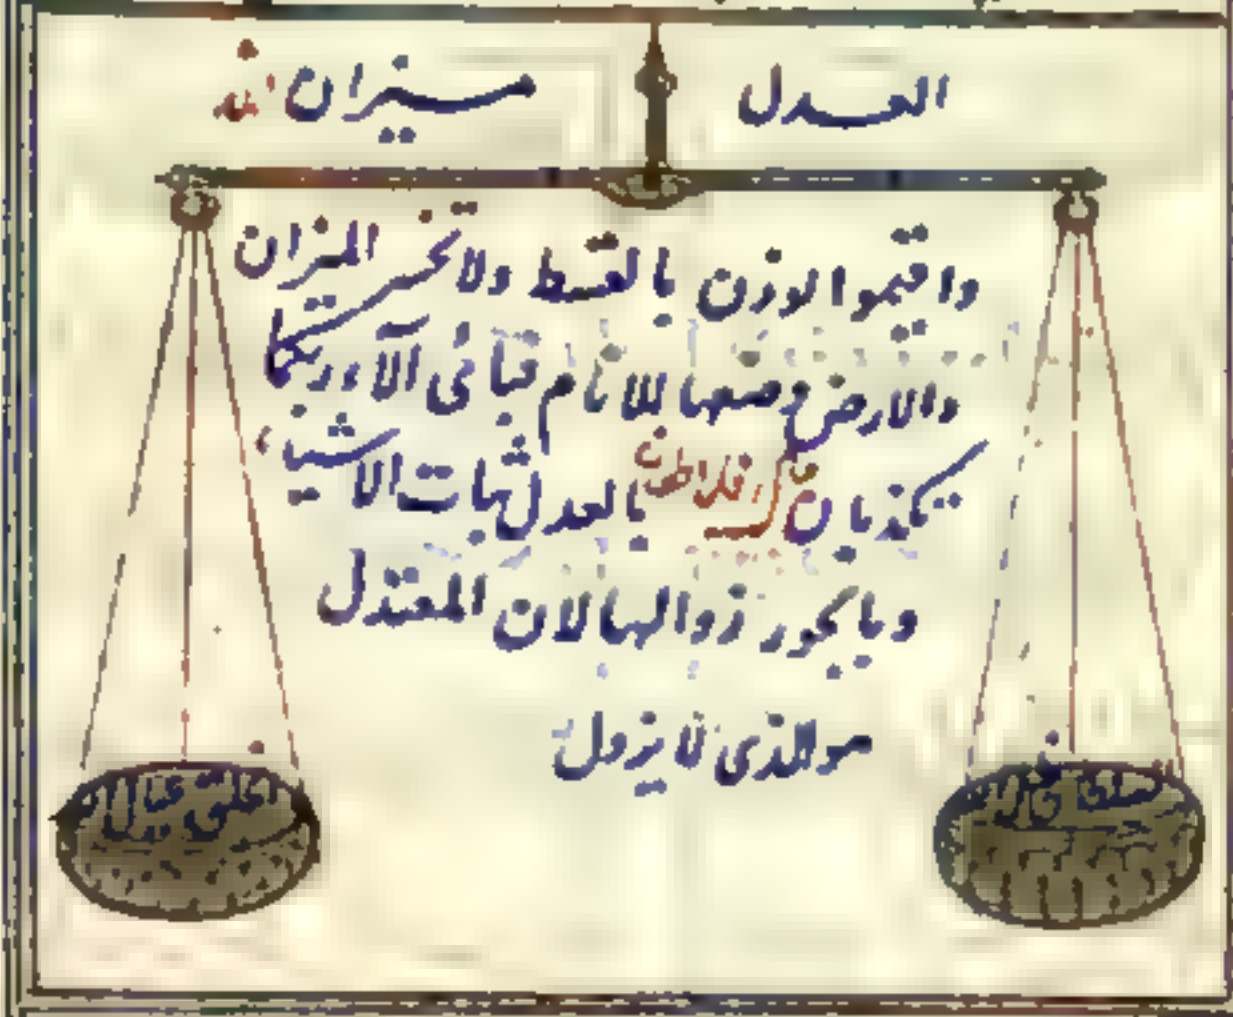 العدل ميزان الله
واقيموا الوزن بالقسط ولا تخسر الميزان
والارض وضعها للانام فبأى آلاء ربكما
تكذبان قال افلاطون بالعدل ثبات الاشياء
وبا لجور زوالها لان المعتدل
هو الذى لا يزول